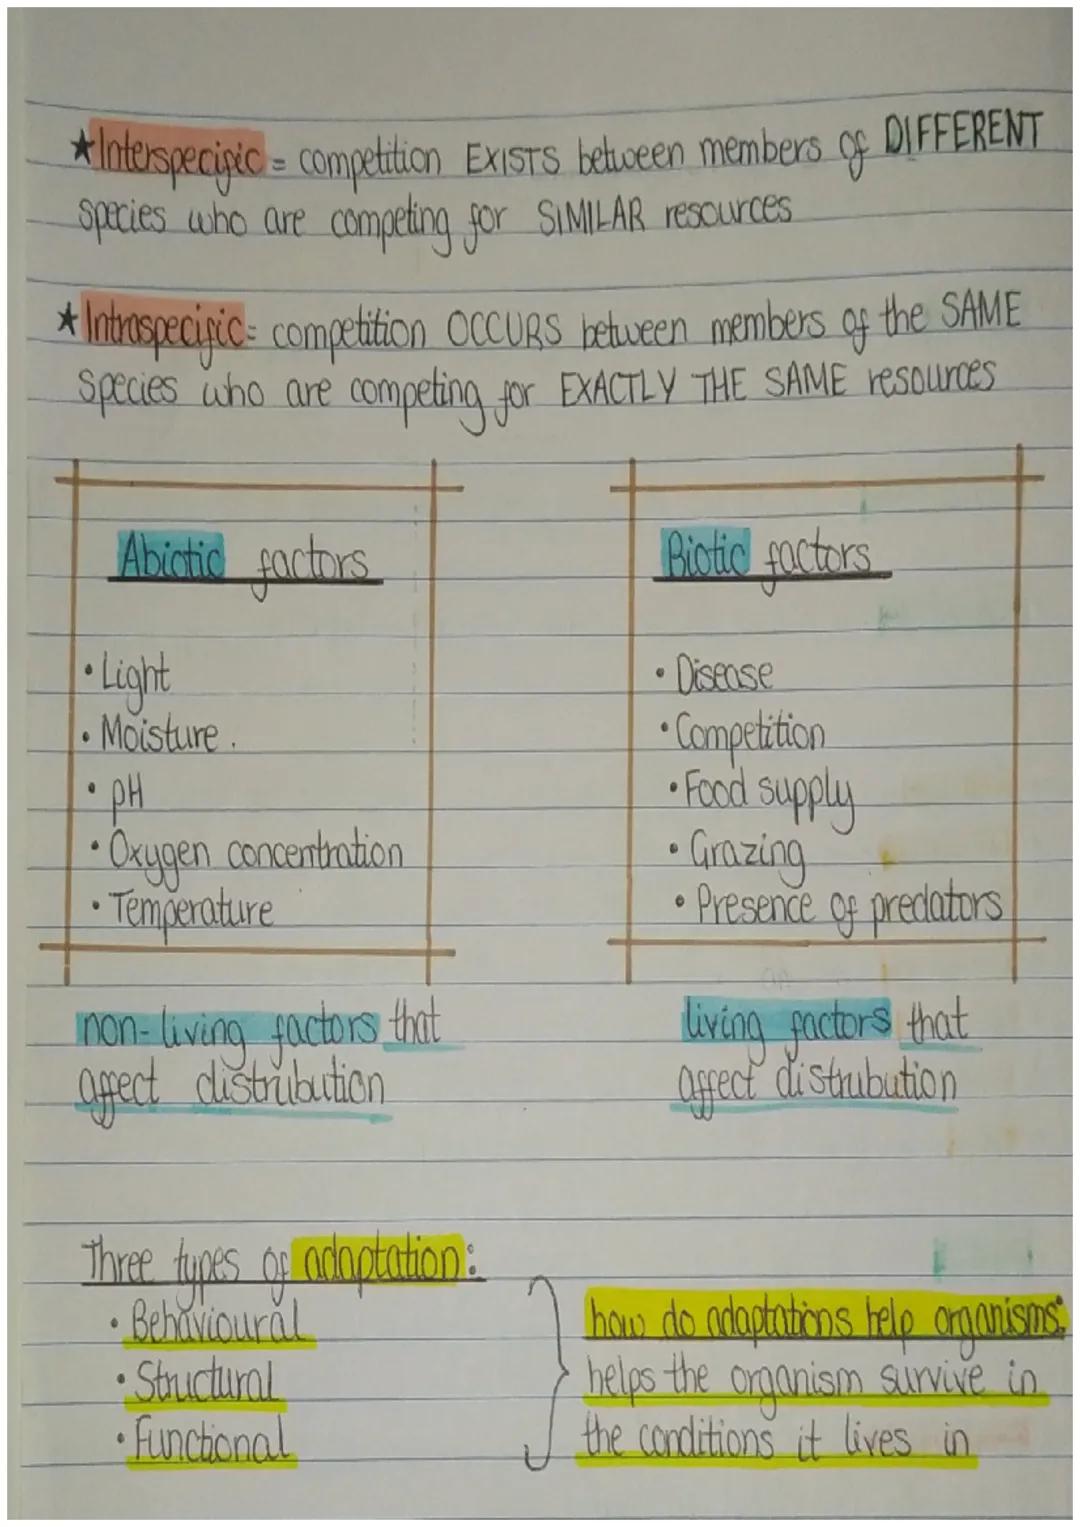 ★Interspecific = competition EXISTS between members of DIFFERENT
species who are competing for SIMILAR resources
★Intraspecific= competition OCCURS between members of the SAME
species who are competing for EXACTLY THE SAME resources
Abiotic factors
• Light
• Moisture.
• pH
• Oxygen concentration
• Temperature
non-living factors that
affect distribution
Biotic factors
• Disease
• Competition
• Food supply
• Grazing
• Presence of predators
living factors that
affect distribution
Three types of adaptation:
• Behavioural
• Structural
• Functional
how do adaptations help organisms:
helps the organism survive in
the conditions it lives in